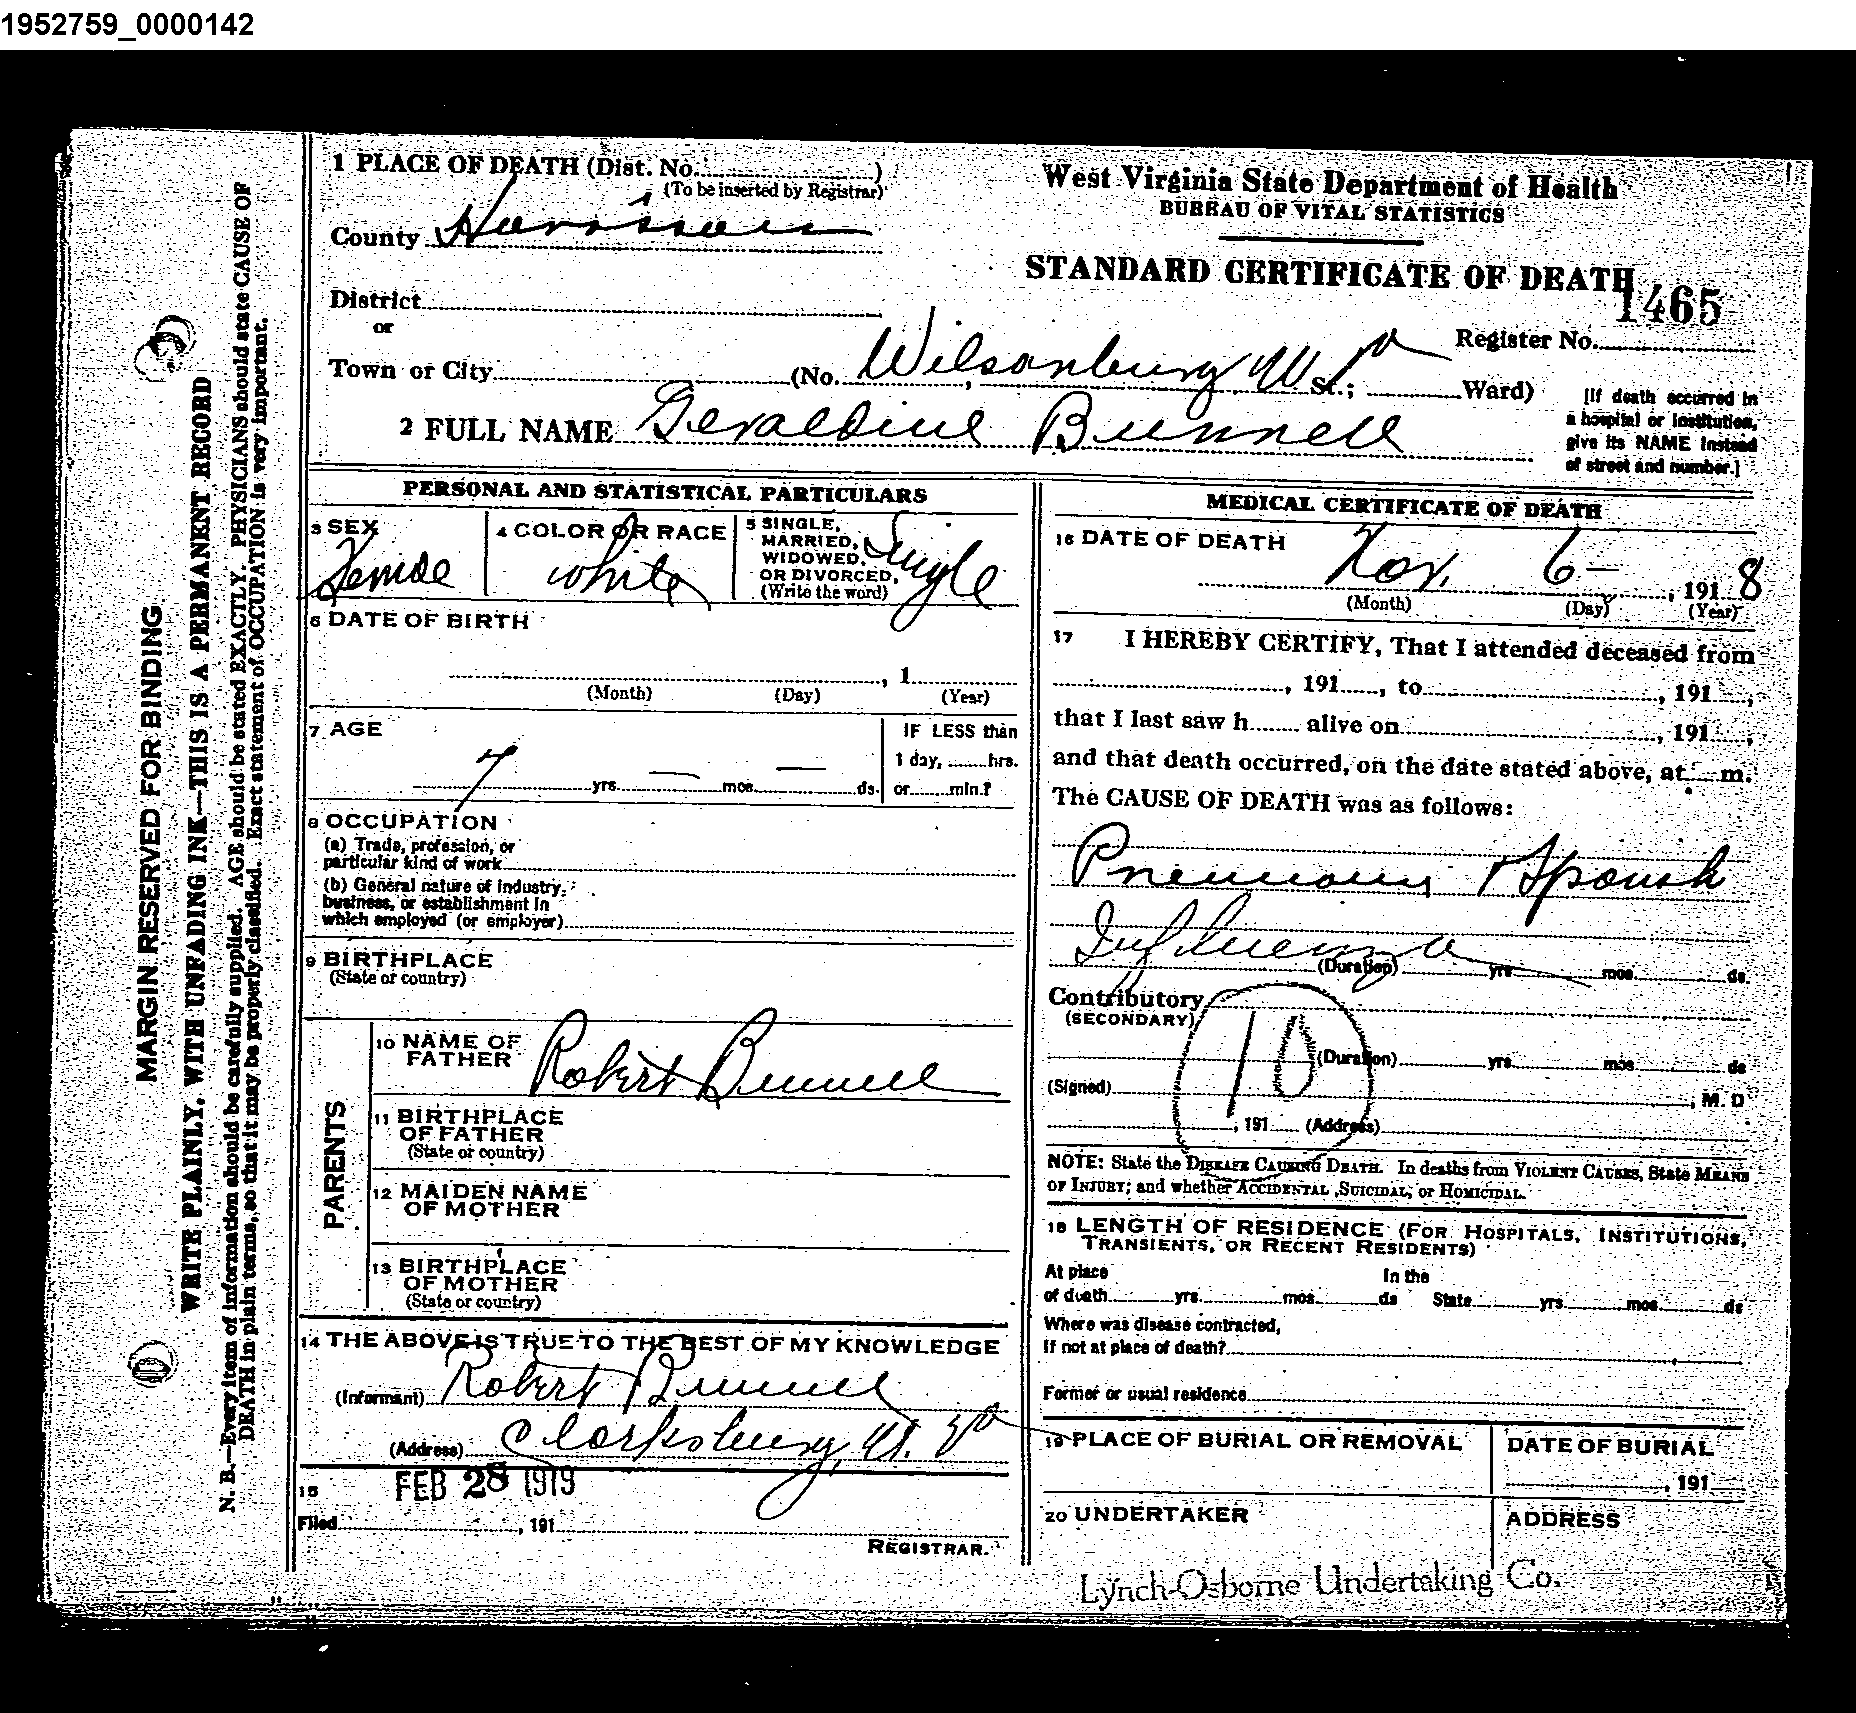 1952759_0000142
1 PLACE OF DEATH (Dist. No. )
(To be inserted by Registrar)
County Harrison
District
or
Town or City (No. Wilsonburg W Va St.; Ward)
West Virginia State Department of Health
BUREAU OF VITAL STATISTICS
STANDARD CERTIFICATE OF DEATH
1465
Register No.
[If death occurred in
a hospital or institution,
give its NAME instead
of street and number.]
2 FULL NAME Geraldine Bunnell
PERSONAL AND STATISTICAL PARTICULARS
3 SEX
Female
4 COLOR OR RACE
White
5 SINGLE,
MARRIED,
WIDOWED,
OR DIVORCED,
(Write the word)
Single
6 DATE OF BIRTH
, 1
(Month) (Day) (Year)
7 AGE
7 yrs. — mos. — ds.
IF LESS than
1 day, hrs.
or min.?
8 OCCUPATION
(a) Trade, profession, or
particular kind of work
(b) General nature of industry,
business, or establishment in
which employed (or employer)
9 BIRTHPLACE
(State or country)
PARENTS
10 NAME OF
FATHER Robert Bunnell
11 BIRTHPLACE
OF FATHER
(State or country)
12 MAIDEN NAME
OF MOTHER
13 BIRTHPLACE
OF MOTHER
(State or country)
14 THE ABOVE IS TRUE TO THE BEST OF MY KNOWLEDGE
(Informant) Robert Bunnell
(Address) Clarksburg, W. Va
15 FEB 28 1919
Filed , 191
REGISTRAR.
MEDICAL CERTIFICATE OF DEATH
16 DATE OF DEATH
Nov. 6 — , 1918
(Month) (Day) (Year)
17 I HEREBY CERTIFY, That I attended deceased from
, 191 , to , 191 ,
that I last saw h alive on , 191 ,
and that death occurred, on the date stated above, at m.
The CAUSE OF DEATH was as follows:
Pneumonia & Spanish
Influenza
(Duration) yrs. mos. ds.
Contributory
(SECONDARY)
10
(Duration) yrs. mos. ds
(Signed) , M. D
, 191 (Address)
NOTE: State the DISEASE CAUSING DEATH. In deaths from VIOLENT CAUSES, State MEANS
OF INJURY; and whether ACCIDENTAL, SUICIDAL, or HOMICIDAL.
18 LENGTH OF RESIDENCE (FOR HOSPITALS, INSTITUTIONS,
TRANSIENTS, OR RECENT RESIDENTS)
At place In the
of death yrs. mos. ds State yrs. mos. ds
Where was disease contracted,
If not at place of death?
Former or usual residence
19 PLACE OF BURIAL OR REMOVAL
DATE OF BURIAL
, 191
20 UNDERTAKER
ADDRESS
Lynch-Osborne Undertaking Co.
MARGIN RESERVED FOR BINDING
WRITE PLAINLY, WITH UNFADING INK—THIS IS A PERMANENT RECORD
N. B.—Every item of information should be carefully supplied. AGE should be stated EXACTLY. PHYSICIANS should state CAUSE OF
DEATH in plain terms, so that it may be properly classified. Exact statement of OCCUPATION is very important.